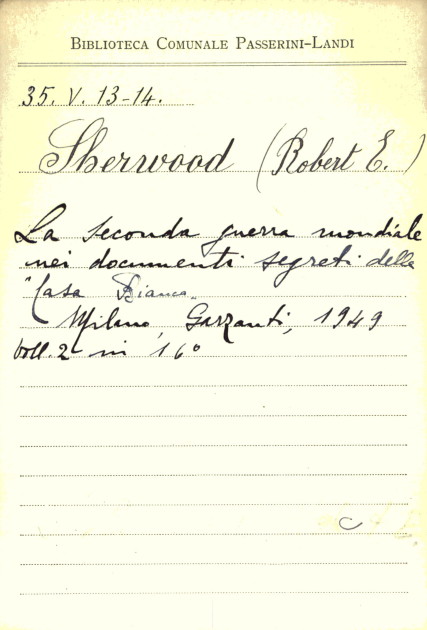 BIBLIOTECA COMUNALE PASSERINI-LANDI
35. V. 13-14.
Sherwood (Robert E.)
La seconda guerra mondiale
nei documenti segreti della
"Casa Bianca"
Milano, Garzanti, 1949
voll. 2 in 16°
C